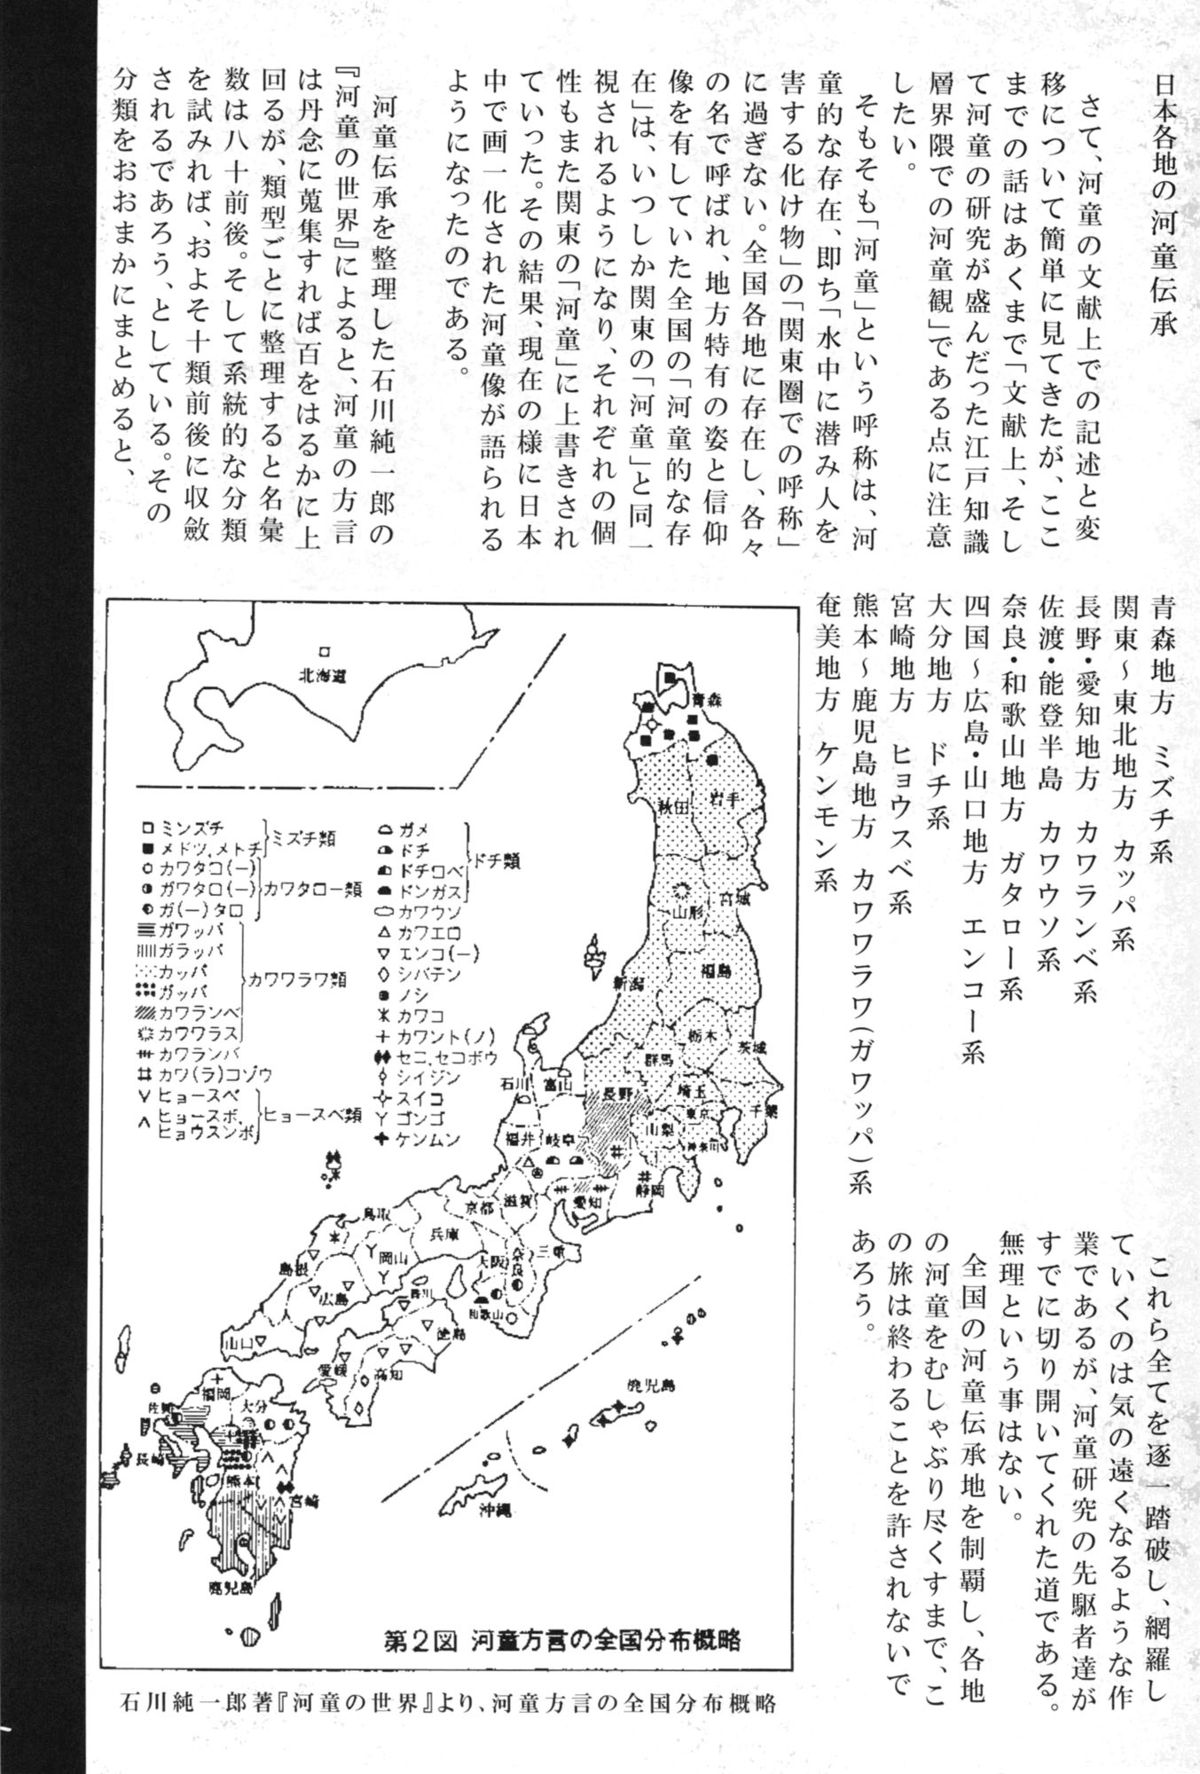 日本各地の河童伝承
さて、河童の文献上での記述と変
移について簡単に見てきたが、ここ
までの話はあくまで「文献上、そし
て河童の研究が盛んだった江戸知識
層界隈での河童観」である点に注意
したい。
そもそも「河童」という呼称は、河
童的な存在、即ち「水中に潜み人を
害する化け物」の「関東圏での呼称」
に過ぎない。全国各地に存在し、各々
の名で呼ばれ、地方特有の姿と信仰
像を有していた全国の「河童的な存
在」は、いつしか関東の「河童」と同一
視されるようになり、それぞれの個
性もまた関東の「河童」に上書きされ
ていった。その結果、現在の様に日本
中で画一化された河童像が語られる
ようになったのである。
河童伝承を整理した石川純一郎の
『河童の世界』によると、河童の方言
は丹念に蒐集すれば百をはるかに上
回るが、類型ごとに整理すると名彙
数は八十前後。そして系統的な分類
を試みれば、およそ十類前後に収斂
されるであろう、としている。その
分類をおおまかにまとめると、
青森地方 ミズチ系
関東～東北地方 カッパ系
長野・愛知地方 カワランベ系
佐渡・能登半島 カワウソ系
奈良・和歌山地方 ガタロー系
四国～広島・山口地方 エンコー系
大分地方 ドチ系
宮崎地方 ヒョウスベ系
熊本～鹿児島地方 カワワラワ(ガワッパ)系
奄美地方 ケンモン系
これら全てを逐一踏破し、網羅し
ていくのは気の遠くなるような作
業であるが、河童研究の先駆者達が
すでに切り開いてくれた道である。
無理という事はない。
全国の河童伝承地を制覇し、各地
の河童をむしゃぶり尽くすまで、こ
の旅は終わることを許されないで
あろう。
北海道
青森
秋田
岩手
山形
宮城
新潟
福島
栃木
群馬
茨城
石川
富山
長野
埼玉
東京
千葉
福井
岐阜
山梨
神奈川
静岡
愛知
滋賀
京都
兵庫
鳥取
岡山
大阪
奈良
三重
島根
広島
香川
和歌山
山口
徳島
愛媛
高知
福岡
大分
佐賀
長崎
熊本
宮崎
鹿児島
鹿児島
沖縄
ミンズチ
メドツ,メトチ
ミズチ類
カワタコ(ー)
ガワタロ(ー)
ガ(ー)タロ
カワタロー類
ガワッパ
ガラッパ
カッパ
ガッパ
カワランベ
カワワラス
カワワラワ類
カワランバ
カワ(ラ)コゾウ
ヒョースベ
ヒョースボ,
ヒョウスンボ
ヒョースベ類
ガメ
ドチ
ドチロベ
ドンガス
ドチ類
カワウソ
カワエロ
エンコ(ー)
シバテン
ノシ
カワコ
カワント(ノ)
セコ,セコボウ
シイジン
スイコ
ゴンゴ
ケンムン
第2図 河童方言の全国分布概略
石川純一郎著『河童の世界』より、河童方言の全国分布概略